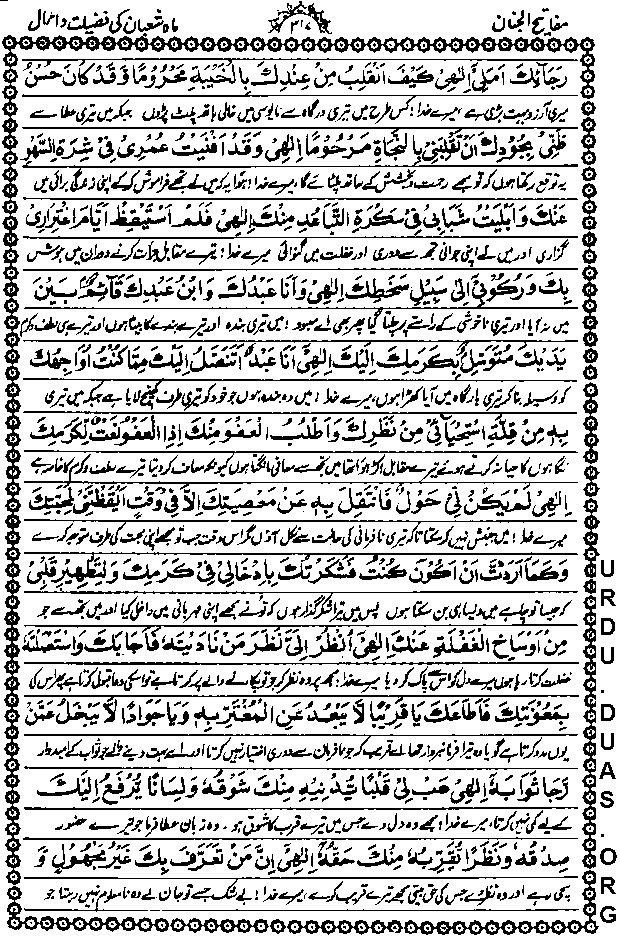 مفاتیح الجنان ۳۱۷ ماہ شعبان کی فضیلت واعمال
رَجَائِكَ اَمَلِیْ اِلٰهِیْ كَیْفَ اَنْقَلِبُ مِنْ عِنْدِكَ بِالْخَیْبَةِ مَحْرُوْمًا وَقَدْ كَانَ حُسْنُ
میری آرزو بہت بڑی ہے میرے خدا! کس طرح میں تیری درگاہ سے مایوسی میں خالی ہاتھ پلٹ پڑوں جبکہ میں تیری عطا سے
ظَنِّیْ بِجُوْدِكَ اَنْ تَقْلِبَنِیْ بِالنَّجَاةِ مَرْحُوْمًا اِلٰهِیْ وَقَدْ اَفْنَیْتُ عُمْرِیْ فِیْ شِرَّةِ السَّهْوِ
یہ توقع رکھتا ہوں کہ تو مجھے رحمت و بخشش کے ساتھ پلٹائے گا، میرے خدا! ہوا یہ کہ میں نے تجھے فراموش کر کے اپنی زندگی برائی میں
عَنْكَ وَاَبْلَیْتُ شَبَابِیْ فِیْ سَكْرَةِ التَّبَاعُدِ مِنْكَ اِلٰهِیْ فَلَمْ اَسْتَیْقِظْ اَیَّامَ اغْتِرَارِیْ
گزاری اور میں نے اپنی جوانی تجھ سے دوری اور غفلت میں گنوائی میرے خدا! تیرے مقابل جرأت کرنے کے دوران میں ہوش
بِكَ وَرُكُوْنِیْ اِلٰی سَبِیْلِ سَخَطِكَ اِلٰهِیْ وَاَنَا عَبْدُكَ وَابْنُ عَبْدِكَ قَآئِمٌ بَیْنَ
میں نہ آیا اور تیری ناخوشی کے راستے پر چلتا گیا پھر بھی اے معبود! میں تیرا بندہ اور تیرے بندے کا بیٹا ہوں اور تیرے ہی لطف و کرم
یَدَیْكَ مُتَوَسِّلٌ بِكَرَمِكَ اِلَیْكَ اِلٰهِیْ اَنَا عَبْدٌ اَتَنَصَّلُ اِلَیْكَ مِمَّا كُنْتُ اُوَاجِهُكَ
کو وسیلہ بنا کر تیری بارگاہ میں آیا کھڑا ہوں، میرے خدا! میں وہ بندہ ہوں جو خود کو تیری طرف کھینچ لایا ہے جبکہ میں تیری
بِهٖ مِنْ قِلَّةِ اسْتِحْیَآئِیْ مِنْ نَظَرِكَ وَاَطْلُبُ الْعَفْوَ مِنْكَ اِذِ الْعَفْوُ نَعْتٌ لِكَرَمِكَ
نگاہوں کا حیا نہ کرتے ہوئے تیرے مقابل اکڑا ہوا تھا میں تجھ سے معافی مانگتا ہوں کیونکہ معاف کر دینا تیرے لطف و کرم کا خاصہ ہے
اِلٰهِیْ لَمْ یَكُنْ لِیْ حَوْلٌ فَاَنْتَقِلَ بِهٖ عَنْ مَعْصِیَتِكَ اِلَّا فِیْ وَقْتٍ اَیْقَظْتَنِیْ لِمَحَبَّتِكَ
میرے خدا! میں جنبش نہیں کر سکتا تاکہ تیری نافرمانی کی حالت سے نکل آؤں مگر اس وقت جب تو مجھے اپنی محبت کی طرف متوجہ کرے
وَكَمَا اَرَدْتَ اَنْ اَكُوْنَ كُنْتُ فَشَكَرْتُكَ بِاِدْخَالِیْ فِیْ كَرَمِكَ وَلِتَطْهِیْرِ قَلْبِیْ
کہ جیسا تو چاہے میں ویسا ہی بن سکتا ہوں پس میں تیرا شکر گزار ہوں کہ تو نے مجھے اپنی مہربانی میں داخل کیا اور میں تجھ سے جو
مِنْ اَوْسَاخِ الْغَفْلَةِ عَنْكَ اِلٰهِیْ اُنْظُرْ اِلَیَّ نَظَرَ مَنْ نَادَیْتَهٗ فَاَجَابَكَ وَاسْتَعْمَلْتَهٗ
غفلت کرتا رہا ہوں میرے دل کو اس سے پاک کر دیا میرے خدا! مجھ پر وہ نظر کر جو تو پکارنے والے پر کرتا ہے تو اسکی دعا قبول کرتا ہے پھر اس کی
بِمَعُوْنَتِكَ فَاَطَاعَكَ یَا قَرِیْبًا لَا یَبْعُدُ عَنِ الْمُغْتَرِّ بِهٖ وَیَا جَوَادًا لَا یَبْخَلُ عَمَّنْ
یوں مدد کرتا ہے گویا وہ تیرا فرمانبردار تھا اے قریب کہ جو نافرمان سے دوری اختیار نہیں کرتا اور اے بہت دینے والے جو ثواب کے امیدوار
رَجَا ثَوَابَهٗ اِلٰهِیْ هَبْ لِیْ قَلْبًا یُدْنِیْهِ مِنْكَ شَوْقُهٗ وَلِسَانًا یُرْفَعُ اِلَیْكَ
کے لیے کمی نہیں کرتا، میرے خدا! مجھے وہ دل دے جس میں تیرے قرب کا شوق ہو۔ وہ زبان عطا فرما جو تیرے حضور
صِدْقُهٗ وَنَظَرًا یُقَرِّبُهٗ مِنْكَ حَقُّهٗ اِلٰهِیْ اِنَّ مَنْ تَعَرَّفَ بِكَ غَیْرُ مَجْهُوْلٍ وَ
سچی رہے اور وہ نظر دے جس کی حق بینی مجھے تیرے قریب کرے، میرے خدا! بے شک جسے تو جان لے وہ نامعلوم نہیں رہتا جو
URDU.DUAS.ORG